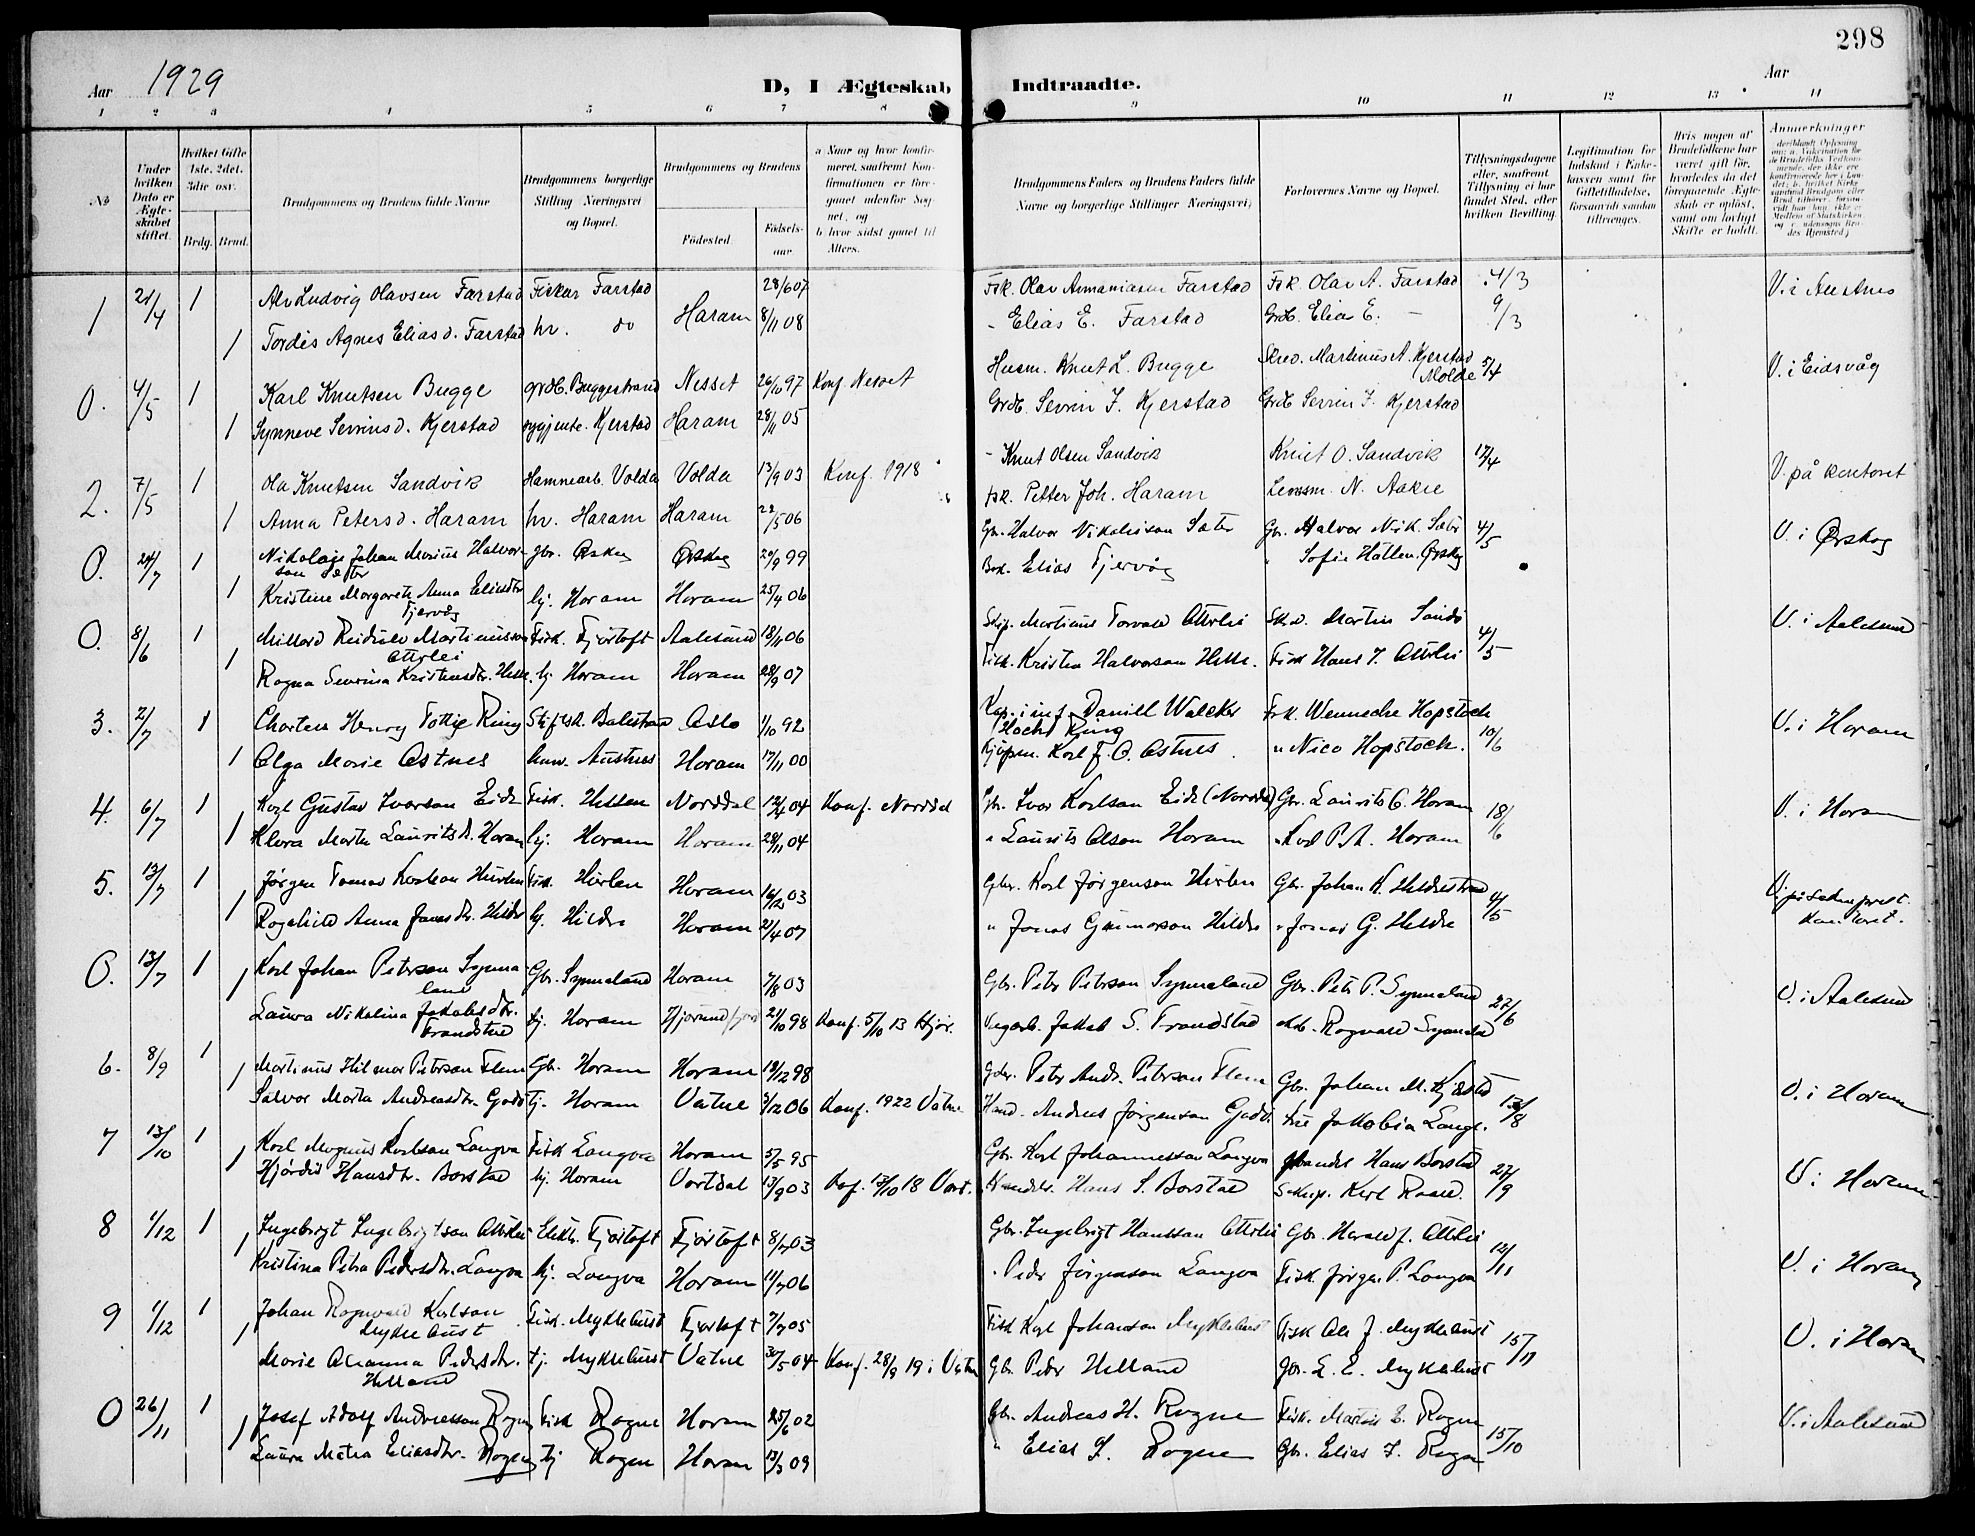 298
Aar 1929
D, I Ægteskab Indtraadte.
Aar
1 2 3 4 5 6 7 8 9 10 11 12 13 14
No
Under hvilken Dato er Ægteskabet stiftet.
Hvilket Gifte 1ste, 2det, 3die osv.
Brdg. Brud.
Brudgommens og Brudens fulde Navne
Brudgommens borgerlige Stilling Næringsvei og Bopæl.
Brudgommens og Brudens
Fødested. Fødselsaar
a Naar og hvor konfirmeret, saafremt Konfirmationen er foregaaet udenfor Sognet, og
b hvor sidst gaaet til Alters.
Brudgommens Faders og Brudens Faders fulde Navne og borgerlige Stillinger Næringsvei)
Forlovernes Navne og Bopæl.
Tillysningsdagene eller, saafremt Tillysning ei har fundet Sted, efter hvilken Bevilling.
Legitimation for Indskud i Enkekassen samt for Giftetilladelse, forsaavidt saadan tiltrænges.
Hvis nogen af Brudefolkene har været gift før, hvorledes da det foregaaende Ægteskab er opløst, samt om lovligt Skifte er holdt.
Anmerkninger
1 21/4 1 Alv Ludvig Olavsen Farstad Fiskar Farstad 28/6 07 Fsk. Olav Ananiasen Farstad Fsk. Olav A. Farstad 4/3 V. i Austnes
1 Tordis Agnes Eliasd. Farstad hv. do Haram 8/11 08 - Elias E. Farstad Grdb. Elias E. - 9/3
0. 4/5 1 Karl Knutsen Bugge grdb. Buggestrand Nesset 26/10 97 Konf. Nesset Husm. Knut L. Bugge Skred. Martinus A. Kjerstad Molde 5/4 V. i Eidsvåg
1 Synneve Sevrinsd. Kjerstad Kjerstad Haram 28/11 05 Grdb. Sevrin J. Kjerstad Grdb Sevrin J. Kjerstad
2. 7/5 1 Ola Knutsen Sandvik Hamnearb. Volda Volda 13/9 03 Konf. 1918 - Knut Olsen Sandvik Knut O. Sandvik 17/4 V. på kontoret
1 Anna Petersd. Haram hv. Haram Haram 22/5 06 fsk. Petter Joh. Haram Lensm. N. Aakre
0. 24/7 1 Nikolage Johan Marius Halvorson Sæter gbr. Ørskog Ørskog 20/9 99 Gbr. Halvor Nikolaison Sæter Gbr. Halvor Nik. Sæter 4/5 V. i Ørskog
1 Kristine Margareth Anna Eliasdtr Fjervåg hj. Horam Horam 25/4 06 Elias Fjervåg " Sofie Hatlen. Ørskog
0. 8/6 1 Millard Reidulv Martinusson Otterlei Fisk. Fjørtoft Aalesund 18/11 06 Skip. Martinus Torvald Otterlei Martin Sandø 4/5 V. i Aalesund
1 Ragna Severina Kristensdtr. Helle hj Horam Horam 28/9 07 Fisk. Kristen Halvorson Helle. Fisk Hans J. Otterlei
3. 2/7 1 Charles Henry Tottie Ring Balestrand Oslo 1/10 92 Kap. i inf. Daniell Walcker Hoch Ring Frk. Wennecke Hopstock 10/6 V. i Horam
1 Olga Marie Ostnes husm. Austnes Horam 17/11 00 Kjøpm. Karl F. O. Ostnes. " Nico Hopstock.
4. 6/7 1 Karl Gustav Ivarson Eide Fisk. Hellen Norddal 12/4 04 Konf. Norddal Gbr. Ivar Karlson Eide (Norddal) Gbr. Laurits C. Horam 18/6 V. i Horam
1 Klara Marta Lauritsd. Horam hj. Horam Horam 28/11 04 " Laurits Olsen Horam " Karl P. A. Horam
5. 13/7 1 Jørgen Tomas Karlson Hurlen Fisk. Hurlen Horam 16/12 03 Gbr. Karl Jørgenson Hurlen Gbr. Johan K. Hildrestrand 4/5 V. på soknepr. kontoret.
1 Ragnhild Anna Jonasdtr. Hildre hj. Hildre Horam 21/4 07 " Jonas Gunnarson Hildre " Jonas G. Hildre
0. 13/7 1 Karl Johan Peterson Synnaland Gbr. Synnaland Horam 7/8 03 Gbr. Peter Peterson Synnaland Gbr. Peter P. Synnaland 27/6 V. i Aalesund
1 Laura Nikolina Jakobsdtr. Trandstad hj. Horam Hjørundfjord 21/10 98 Konf. 5/10 13 Hjør. Vegarb. Jakob S. Trandstad Ragnvald Synnaland
6. 8/9 1 Martinus Hilmar Peterson Flem Gbr. Horam Horam 19/12 98 Gbr. Peter Andr. Peterson Flem Gbr. Johan M. Kjerstad 13/8 V. i Horam
1 Salvor Marta Andreasdtr. Godø tj. Horam Vatne 3/12 06 Konf. 1922 Vatne Hand. Andreas Jørgenson Godø Fru Jakobia Longva
7 13/10 1 Karl Magnus Karlson Longva Fisk Longva Horam 5/5 95 Gbr. Karl Johannesson Longva Handel Hans Borstad 27/9 V. i Horam
1 Hjørdis Hansdtr. Borstad hj. Horam Vartdal 13/9 03 Kof. 13/10 18 Vart. Handelr. Hans S. Borstad Karl Roald.
8 1/12 1 Ingebrigt Ingebrigtson Otterlei Elektr. Fjørtoft Fjørtoft 8/7 03 Gbr. Ingebrigt Hansson Otterlei Gbr. Harald J. Otterlei 12/11 V. i Horam
1 Kristina Petra Pedersdtr. Longva hj. Longva Horam 11/7 06 " Peder Jørgenson Longva Fisk. Jørgen P. Longva
9 1/12 1 Johan Ragnvald Karlson Myklebust Fisk. Myklebust Fjørtoft 7/7 05 Fisk Karl Johanson Myklebust Fisk Ole J. Myklebust 15/11 V. i Horam
1 Marie Olianna Pedersdtr. Helland tj. Myklebust Vatne 30/5 04 Konf. 28/9 19 i Vatne Gbr. Peder Helland Gbr. L. E. Myklebust
0 26/11 1 Josef Adolf Andreasson Rogne Fisk Rogne Horam 25/6 02 Gbr. Andreas H. Rogne Fisk. Martin E. Rogne 15/10 V. i Aalesund
1 Laura Matea Eliasdtr. Rogne hj Rogne Horam 13/3 09 " Elias J. Rogne Gbr. Elias J. Rogne